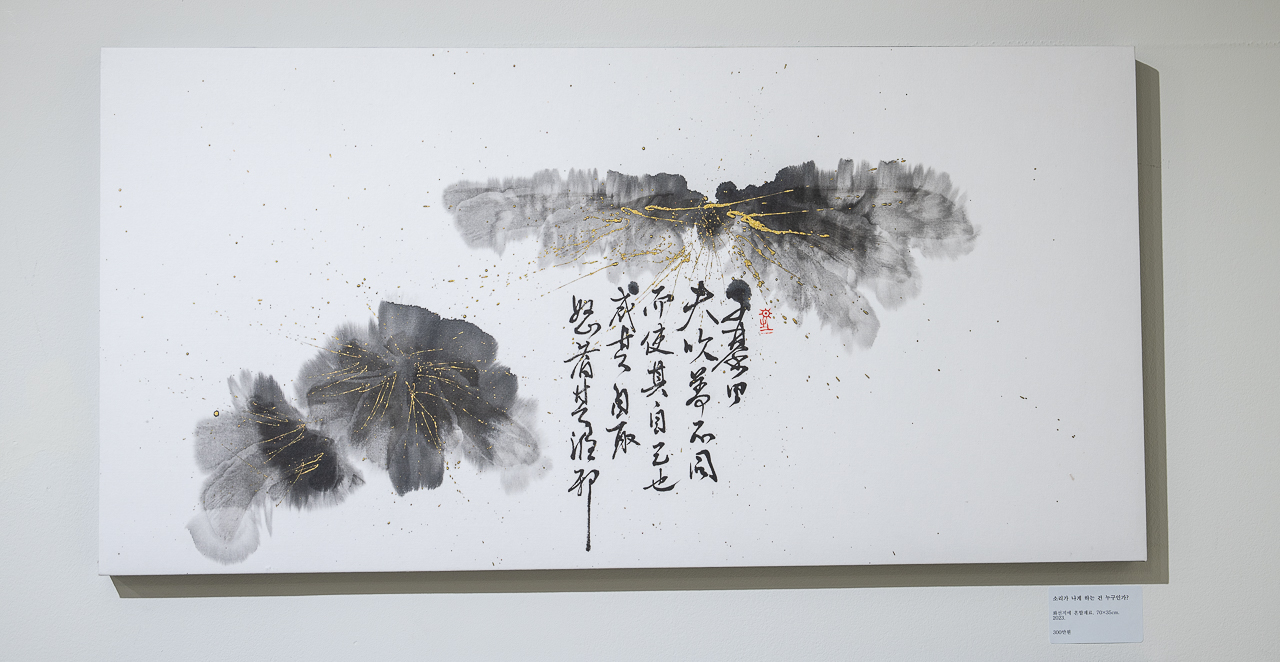 子綦曰
夫吹萬不同
而使其自己也
咸其自取
怒者其誰邪
소리가 나게 하는 건 누구인가?
화선지에 혼합재료, 70×35cm,
2023.
300만원